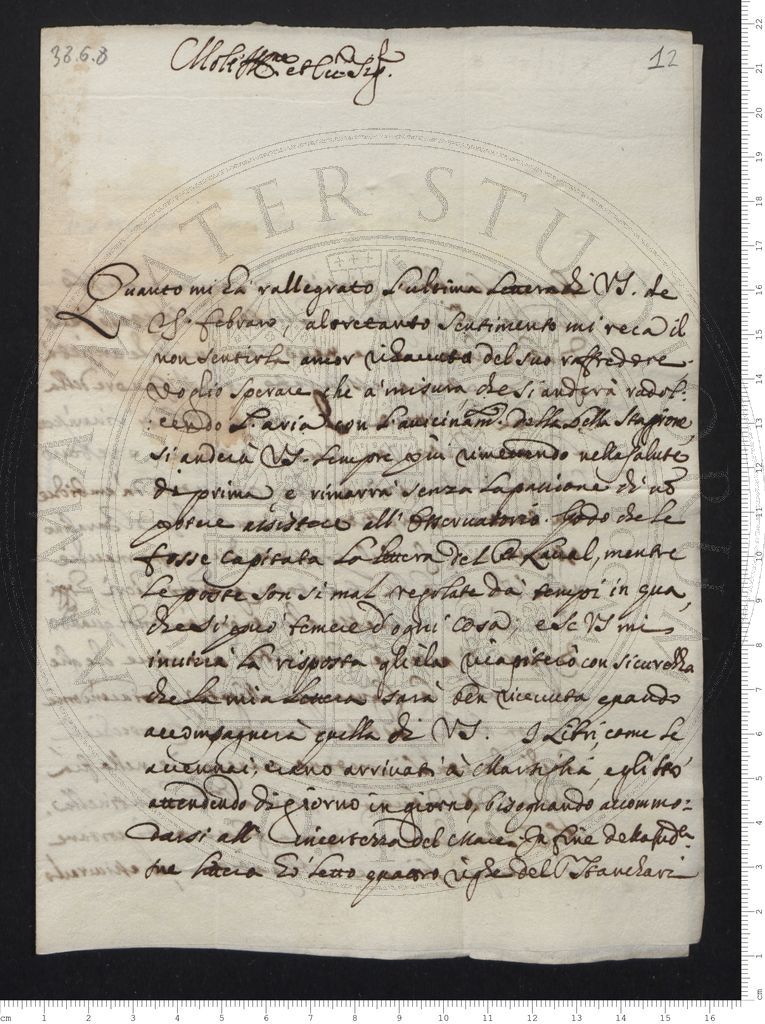 38.6.8
12
Quanto mi ha rallegrato l'ultima lettera di VS. de
febraro, altretanto sentimento mi reca il
non sentirla ancor rihavuta del suo raffredore.
Voglio sperare che à misura, che si anderà radol-
:cendo l'aria con l'avicinam.to della bella stagione,
si anderà VS. sempre più rimettendo nella salute
di prima, e rimarrà senza la passione di nõ
potere assistere all'Osservatorio. Godo che le
fosse capitata la lettera del Laval, mentre
le poste son sì mal regolate dà tempi in qua,
che si può temere d'ogni cosa; e se VS mi
invierà la risposta gliela ricapiterò con sicurezza
che la mia lettera sarà ben ricevuta quando
accompagnerà quella di VS. I Libri, come le
accennai, erano arrivati à Marsiglia, e gli stò
attendendo di giorno in giorno, bisognando accommo=
darsi all' incertezza del Mare. In fine della
sua lettera hò letto quattro righe del
ALMA MATER STUDIORUM